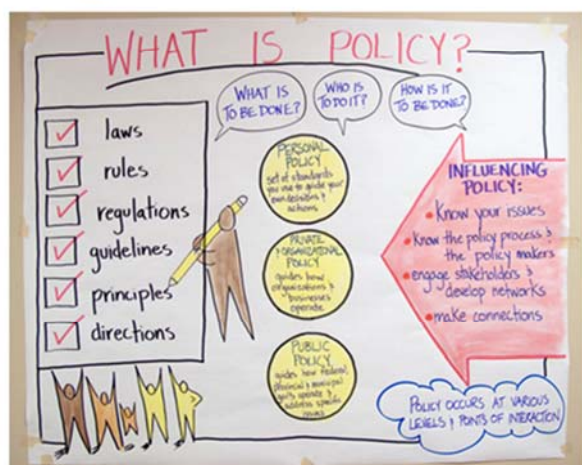 WHAT IS POLICY?
WHAT IS
TO BE DONE?
WHO IS
TO DO IT?
HOW IS IT
TO BE DONE?
laws
rules
regulations
guidelines
principles
directions
PERSONAL
POLICY
set of standards
you use to guide your
own decisions &
actions
PRIVATE
& ORGANIZATIONAL
POLICY
guides how
organizations &
businesses
operate
PUBLIC
POLICY
guides how federal,
provincial & municipal
gov'ts operate &
address specific
issues
INFLUENCING
POLICY:
• Know your issues
• Know the policy process &
the policy makers
• engage stakeholders &
develop networks
• make connections
POLICY OCCURS AT VARIOUS
LEVELS & POINTS OF INTERACTION